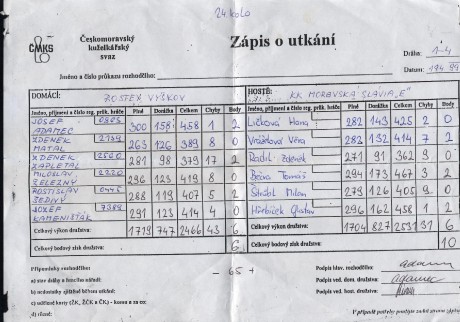 24 kolo
ČMKS
Českomoravský
kuželkářský
svaz
Zápis o utkání
Dráha: 1-4
Jméno a číslo průkazu rozhodčího:
Datum:
DOMÁCÍ: ROSTEX VYŠKOV HOSTÉ: KK MORAVSKÁ SLAVIA „E"
Jméno, příjmení a číslo reg. průk. hráče Plné Dorážka Celkem Chyby Body Jméno, příjmení a číslo reg. průk. hráče Plné Dorážka Celkem Chyby Body
JOSEF ADAMEC 300 158 458 1 2 Ličková Hana 282 143 425 2 0
ZDENEK MATAL 263 126 389 8 0 Věra 282 132 414 7 2
ZDENEK ZAPLETAL 281 98 379 17 2 Radil Zdeněk 271 91 362 9 0
MILOSLAV ŽELEZNÝ 296 123 419 8 0 Tomáš 294 173 467 3 2
ROSTISLAV ŠEDIVÝ 288 119 407 5 2 Milan 279 126 405 9 0
JOZEF KAMENIŠŤÁK 291 123 414 4 0 Gustav 296 162 458 1 2
Celkový výkon družstva: 1719 747 2466 43 6 Celkový výkon družstva: 1704 827 2531 31 6
Celkový bodový zisk družstva 6 Celkový bodový zisk družstva 10
- 65 +
Připomínky rozhodčího:
a) stav dráhy a herního náčiní:
b) nedostatky zjištěné během utkání:
c) udělené karty (ŽK, ŽČK a ČK) - komu a za co:
d) různé:
Podpis hlav. rozhodčího:
Podpis ved. dom. družstva: Adamec
Podpis ved. host. družstva:
V případě potřeby podejte